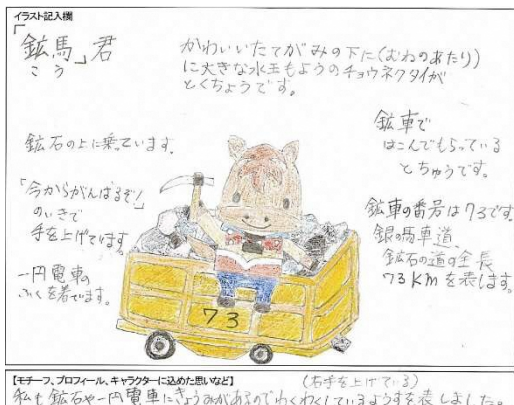 イラスト記入欄
「鉱馬」君
こう
かわいいたてがみの下に(むねのあたり)
に大きな水玉もようのチョウネクタイが
とくちょうです。
鉱石の上に乗っています。
「今からがんばるぞ!」
のいきで
手を上げています。
一円電車の
ふくを着てます。
鉱車で
はこんでもらっている
とちゅうです。
鉱車の番号は73です。
銀の馬車道、
鉱石の道の全長
73kmを表します。
73
【モチーフ、プロフィール、キャラクターに込めた思いなど】
(右手を上げている)
私も鉱石や一円電車にきょうみがあるのでわくわくしているようすを表しました。